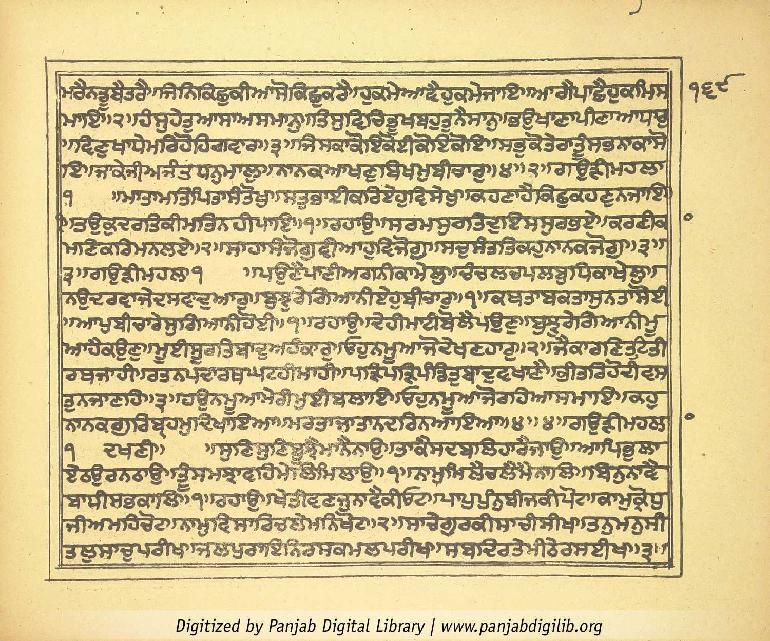 ੧੬੯
ਮਰੈਨਡੂਬੈਤਰੈ॥ਜਿਨਿਕਿਛੁਕੀਆਸੋਕਿਛੁਕਰੈ॥ਹੁਕਮੇਆਵੈਹੁਕਮੇਜਾਇ॥ਆਗੈਪਾਛੈਹੁਕਮਿਸ
ਮਾਇ॥੨॥ਹੰਸੁਹੇਤੁਆਸਾਅਸਮਾਨੁ॥ਤਿਸੁਵਿਚਿਭੂਖਬਹੁਤੁਨੈਸਾਨੁ॥ਭਉਖਾਣਾਪੀਣਾਆਧਾਰੁ
॥ਵਿਣੁਖਾਧੇਮਰਿਹੋਹਿਗਵਾਰ॥੩॥ਜਿਸਕਾਕੋਇਕੋਈਕੋਇਕੋਇ॥ਸਭੁਕੋਤੇਰਾਤੂੰਸਭਨਾਕਾਸੋ
ਇ॥ਜਾਕੇਜੀਅਜੰਤਧਨੁਮਾਲੁ॥ਨਾਨਕਆਖਣੁਬਿਖਮੁਬੀਚਾਰੁ॥੪॥੨॥ਗਉੜੀਮਹਲਾ
੧ ॥ਮਾਤਾਮਤਿਪਿਤਾਸੰਤੋਖੁ॥ਸਤੁਭਾਈਕਰਿਏਹੁਵਿਸੇਖੁ॥ਕਹਣਾਹੈਕਿਛੁਕਹਣੁਨਜਾਇ
॥ਤਉਕੁਦਰਤਿਕੀਮਤਿਨਹੀਪਾਇ॥੧॥ਰਹਾਉ॥ਸਰਮਸੁਰਤਿਦੁਇਸਸੁਰਭਏ॥ਕਰਣੀਕ
ਾਮਣਿਕਰਿਮਨਲਏ॥੨॥ਸਾਹਾਸੰਜੋਗੁਵੀਆਹੁਵਿਜੋਗੁ॥ਸਚੁਸੰਤਤਿਕਹੁਨਾਨਕਜੋਗੁ॥੩॥
੩॥ਗਉੜੀਮਹਲਾ੧ ॥ਪਉਣੈਪਾਣੀਅਗਨੀਕਾਮੇਲੁ॥ਚੰਚਲਚਪਲਬੁਧਿਕਾਖੇਲੁ॥
ਨਉਦਰਵਾਜੇਦਸਵਾਦੁਆਰੁ॥ਬੁਝੁਰੇਗਿਆਨੀਏਹੁਬੀਚਾਰੁ॥੧॥ਕਥਤਾਬਕਤਾਸੁਨਤਾਸੋਈ
॥ਆਪੁਬੀਚਾਰੇਸੁਗਿਆਨੀਹੋਈ॥੧॥ਰਹਾਉ॥ਦੇਹੀਮਾਟੀਬੋਲੈਪਉਣੁ॥ਬੁਝੁਰੇਗਿਆਨੀਮੂ
ਆਹੈਕਉਣੁ॥ਮੂਈਸੁਰਤਿਬਾਦੁਅਹੰਕਾਰੁ॥ਓਹੁਨਮੂਆਜੋਦੇਖਣਹਾਰੁ॥੨॥ਜੈਕਾਰਣਿਤਟਿਤੀ
ਰਥਜਾਹੀ॥ਰਤਨਪਦਾਰਥਘਟਹੀਮਾਹੀ॥ਪੜਿਪੜਿਪੰਡਿਤੁਬਾਦੁਵਖਾਣੈ॥ਭੀਤਰਿਹੋਦੀਵਸ
ਤੁਨਜਾਣੈ॥੩॥ਹਉਨਮੂਆਮੇਰੀਮੁਈਬਲਾਇ॥ਓਹੁਨਮੂਆਜੋਰਹਿਆਸਮਾਇ॥ਕਹੁ
ਨਾਨਕਗੁਰਿਬ੍ਰਹਮੁਦਿਖਾਇਆ॥ਮਰਤਾਜਾਤਾਨਦਰਿਨਆਇਆ॥੪॥੪॥ਗਉੜੀਮਹਲਾ
੧ ਦਖਣੀ॥ ॥ਸੁਣਿਸੁਣਿਬੂਝੈਮਾਨੈਨਾਉ॥ਤਾਕੈਸਦਬਲਿਹਾਰੈਜਾਉ॥ਆਪਿਭੁਲਾ
ਏਠਉਰਨਠਾਉ॥ਤੂੰਸਮਝਾਵਹਿਮੇਲਿਮਿਲਾਉ॥੧॥ਨਾਮੁਮਿਲੈਚਲੈਮੈਨਾਲਿ॥ਬਿਨੁਨਾਵੈ
ਬਾਧੀਸਭਕਾਲਿ॥੧॥ਰਹਾਉ॥ਖੇਤੀਵਣਜੁਨਾਵੈਕੀਓਟ॥ਪਾਪੁਪੁੰਨੁਬੀਜਕੀਪੋਟ॥ਕਾਮੁਕ੍ਰੋਧੁ
ਜੀਅਮਹਿਚੋਟ॥ਨਾਮੁਵਿਸਾਰਿਚਲੇਮਨਿਖੋਟ॥੨॥ਸਾਚੇਗੁਰਕੀਸਾਚੀਸੀਖ॥ਤਨੁਮਨੁਸੀ
ਤਲੁਸਾਚੁਪਰੀਖ॥ਜਲਪੁਰਾਇਨਿਰਸਕਮਲਪਰੀਖ॥ਸਬਦਿਰਤੇਮੀਠੇਰਸਈਖ॥੩॥
Digitized by Panjab Digital Library | www.panjabdigilib.org